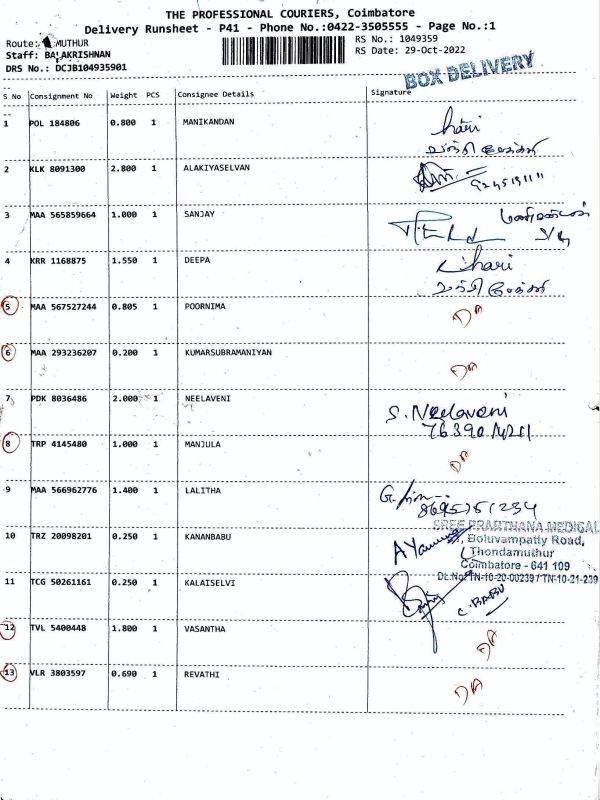 THE PROFESSIONAL COURIERS, Coimbatore
Delivery Runsheet - P41 - Phone No.:0422-3505555 - Page No.:1
Route: MUTHUR
RS No.: 1049359
Staff: BALAKRISHNAN
RS Date: 29-Oct-2022
DRS No.: DCJB104935901
BOX DELIVERY
S No Consignment No Weight PCS Consignee Details Signature
1 POL 184806 0.800 1 MANIKANDAN hari
2 KLK 8091300 2.800 1 ALAKIYASELVAN
3 MAA 565859664 1.000 1 SANJAY
4 KRR 1168875 1.550 1 DEEPA hari
5 MAA 567527244 0.805 1 POORNIMA DA
6 MAA 293236207 0.200 1 KUMARSUBRAMANIYAN DA
7 PDK 8036486 2.000 1 NEELAVENI S. Neelaveni
8 TRP 4145480 1.000 1 MANJULA DA
9 MAA 566962776 1.400 1 LALITHA
SREE PRARTHANA MEDICAL
Boluvampatty Road,
10 TRZ 20098201 0.250 1 KANANBABU
Thondamuthur
Coimbatore - 641 109
DL.No: TN-10-20-00239 / TN-10-21-239
11 TCG 50261161 0.250 1 KALAISELVI C. BABU
12 TVL 5400448 1.800 1 VASANTHA DA
13 VLR 3803597 0.690 1 REVATHI DA